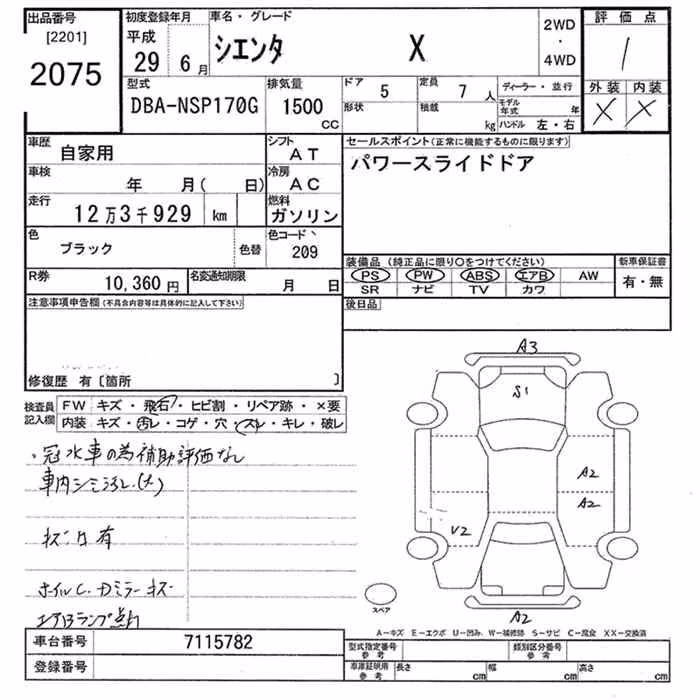 出品番号 初度登録年月 車名・グレード 2WD・4WD 評価点
[2201] 平成
2075 29 6月 シエンタ X 1
型式 排気量 ドア 5 定員 7人 ディーラー・並行 外装 内装
DBA-NSP170G 1500CC 形状 積載 kg モデル年式 年 X X
ハンドル 左・右
車歴 自家用 シフト AT セールスポイント(正常に機能するものに限ります)
車検 年 月( 日) 冷房 AC パワースライドドア
走行 12万3千929 km 燃料 ガソリン
色 ブラック 色替 色コード 209
装備品(純正品に限り○をつけてください) 新車保証書
R券 10,360円 名変通知期限 月 日 PS PW ABS エアB AW 有・無
SR ナビ TV カワ
注意事項申告欄(不具合内容等は具体的に記入して下さい) 後日品
修復歴 有〔箇所 〕
検査員記入欄 FW キズ・飛石・ヒビ割・リペア跡・×要
内装 キズ・汚レ・コゲ・穴・スレ・キレ・破レ
・冠水車の為補助評価なし
車内シミ汚レ(大)
有
ホイルC.Dミラーキズ
エアBランプ点灯
A3
S1
A2
A2
V2
スペア
A2
A-キズ E-エクボ U-凹み W-補修跡 S-サビ C-腐食 XX-交換済
車台番号 7115782 型式指定番号参考 類別区分番号参考
登録番号 車庫証明用参考 長さ cm 幅 cm 高さ cm